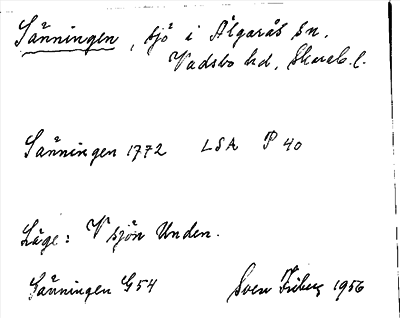 Sänningen, sjö i Älgarås sn.
Vadsbo hd, Skarab. l.
Sänningen 1772 LSA P 40
Läge: V sjön Unden.
Sänningen G54 Sven Friberg 1956